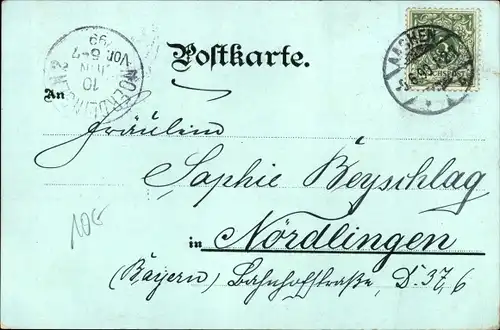 Postkarte.
NOERDLINGEN
10
JUN
VOR. 6-7
99
AACHEN
An
Fräulein
Sophie Beyschlag
in Nördlingen
(Bayern) Bahnhofstraße, D. 37,6
10G